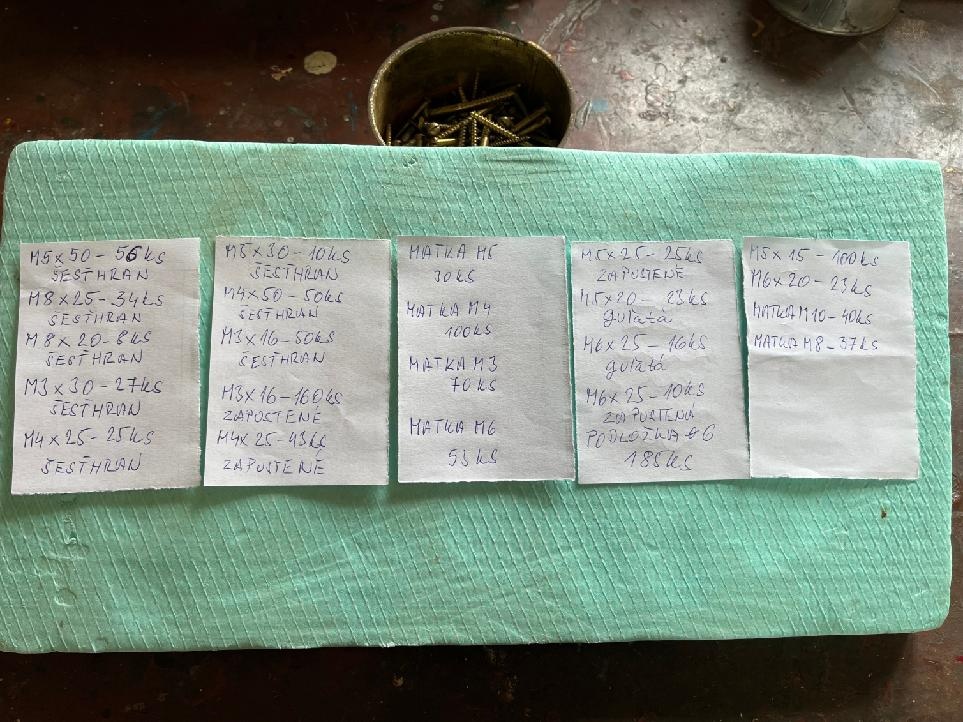 M5x50-56ks
ŠESTHRAN
M8x25-34ks
ŠESTHRAN
M8x20-8ks
ŠESTHRAN
M3x30-27ks
ŠESTHRAN
M4x25-25ks
ŠESTHRAN
M5x30-10ks
ŠESTHRAN
M4x50-50ks
ŠESTHRAN
M3x16-50ks
ŠESTHRAN
M3x16-160ks
ZAPUSTENÉ
M4x25-43ks
ZAPUSTENÉ
MATKA M5
30ks
MATKA M4
100ks
MATKA M3
70ks
MATKA M6
53ks
M5x25-25ks
ZAPUSTENÉ
M5x20-23ks
guľatá
M6x25-16ks
guľatá
M6x25-10ks
ZAPUSTENÁ
PODLOŽKA ø6
185ks
M5x15-100ks
M6x20-23ks
MATKA M10-40ks
MATKA M8-37ks